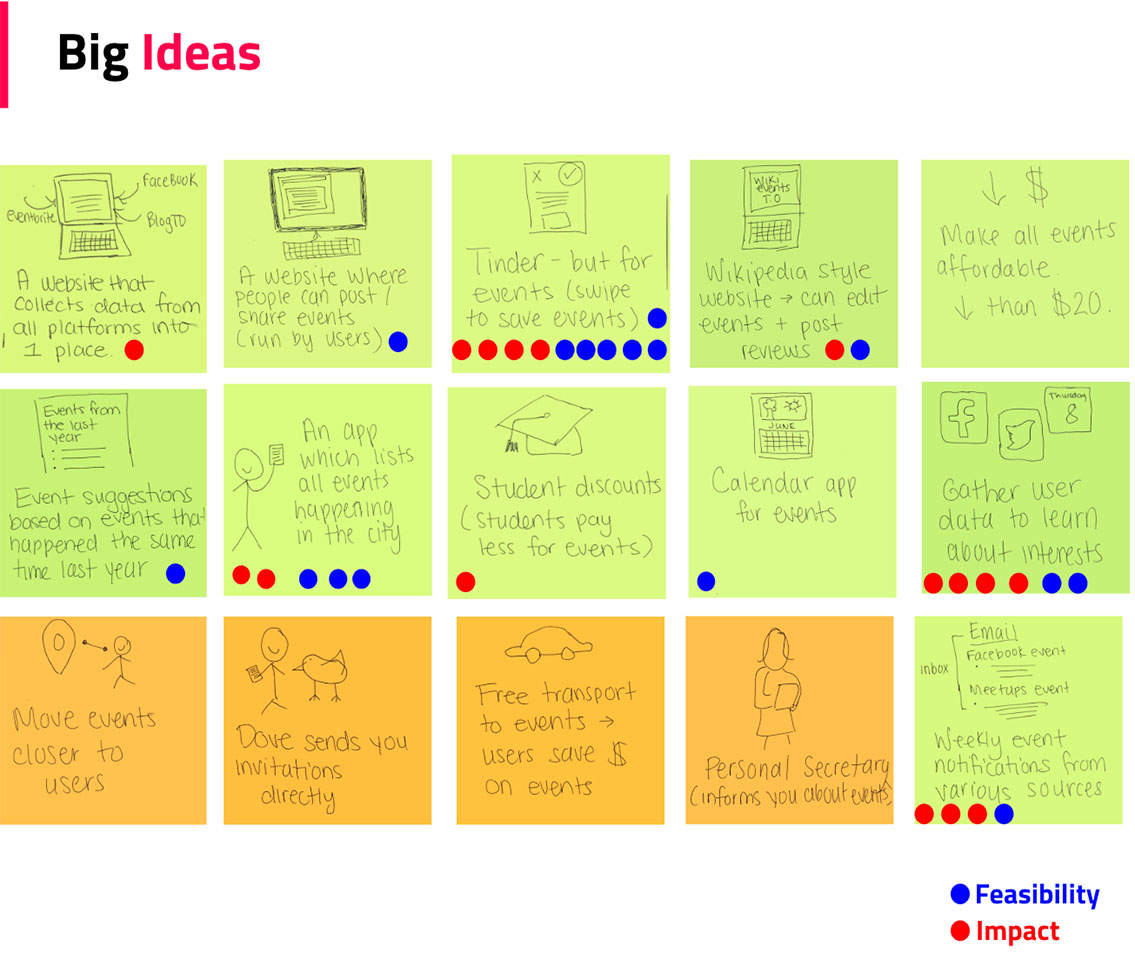 Big Ideas
FaceBook
Eventbrite
BlogTO
A website that
collects data from
all platforms into
1 place.
A website where
people can post /
share events
(run by users)
X
Tinder - but for
events (swipe
to save events)
Wiki
events
T.O
Wikipedia style
website → can edit
events + post
reviews
↓ $
Make all events
affordable.
↓ than $20.
Events from
the last
year
Event suggestions
based on events that
happened the same
time last year
An app
which lists
all events
happening
in the city
Student discounts
(students pay
less for events)
JUNE
Calendar app
for events
f
Thursday
8
Gather user
data to learn
about interests
Move events
closer to
users
Dove sends you
invitations
directly
Free transport
to events →
users save $
on events
Personal Secretary
(informs you about events)
Email
Facebook event
inbox
Meetups event
Weekly event
notifications from
various sources
Feasibility
Impact